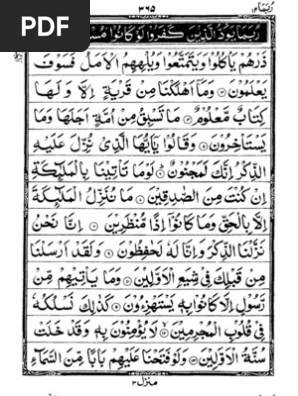 PDF
٣٦٥
ربما ١٤
رُبَمَا يَوَدُّ الَّذِيْنَ كَفَرُوْا لَوْ كَانُوْا
ذَرْهُمْ يَاْكُلُوْا وَيَتَمَتَّعُوْا وَيُلْهِهِمُ الْاَمَلُ فَسَوْفَ
يَعْلَمُوْنَ ۞ وَمَاۤ اَهْلَكْنَا مِنْ قَرْيَةٍ اِلَّا وَلَهَا
كِتَابٌ مَّعْلُوْمٌ ۞ مَا تَسْبِقُ مِنْ اُمَّةٍ اَجَلَهَا وَمَا
يَسْتَاْخِرُوْنَ ۞ وَقَالُوْا يٰۤاَيُّهَا الَّذِيْ نُزِّلَ عَلَيْهِ
الذِّكْرُ اِنَّكَ لَمَجْنُوْنٌ ۞ لَوْمَا تَاْتِيْنَا بِالْمَلٰٓئِكَةِ
اِنْ كُنْتَ مِنَ الصّٰدِقِيْنَ ۞ مَا نُنَزِّلُ الْمَلٰٓئِكَةَ
اِلَّا بِالْحَقِّ وَمَا كَانُوْۤا اِذًا مُّنْظَرِيْنَ ۞ اِنَّا نَحْنُ
نَزَّلْنَا الذِّكْرَ وَاِنَّا لَهٗ لَحٰفِظُوْنَ ۞ وَلَقَدْ اَرْسَلْنَا
مِنْ قَبْلِكَ فِيْ شِيَعِ الْاَوَّلِيْنَ ۞ وَمَا يَاْتِيْهِمْ مِّنْ
رَّسُوْلٍ اِلَّا كَانُوْا بِهٖ يَسْتَهْزِءُوْنَ ۞ كَذٰلِكَ نَسْلُكُهٗ
فِيْ قُلُوْبِ الْمُجْرِمِيْنَ ۞ لَا يُؤْمِنُوْنَ بِهٖ وَقَدْ خَلَتْ
سُنَّةُ الْاَوَّلِيْنَ ۞ وَلَوْ فَتَحْنَا عَلَيْهِمْ بَابًا مِّنَ السَّمَآءِ
منزل ٣